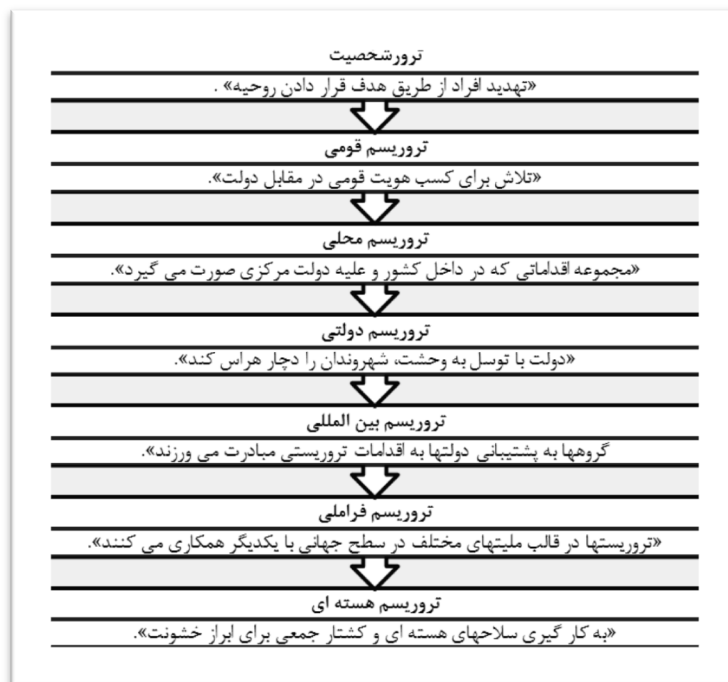 ترورشخصیت
«تهدید افراد از طریق هدف قرار دادن روحیه» .
تروریسم قومی
«تلاش برای کسب هویت قومی در مقابل دولت».
تروریسم محلی
«مجموعه اقداماتی که در داخل کشور و علیه دولت مرکزی صورت می گیرد».
تروریسم دولتی
«دولت با توسل به وحشت، شهروندان را دچار هراس کند».
تروریسم بین المللی
گروهها به پشتیبانی دولتها به اقدامات تروریستی مبادرت می ورزند».
تروریسم فراملی
«تروریستها در قالب ملیتهای مختلف در سطح جهانی با یکدیگر همکاری می کنند».
تروریسم هسته ای
«به کار گیری سلاحهای هسته ای و کشتار جمعی برای ابراز خشونت».